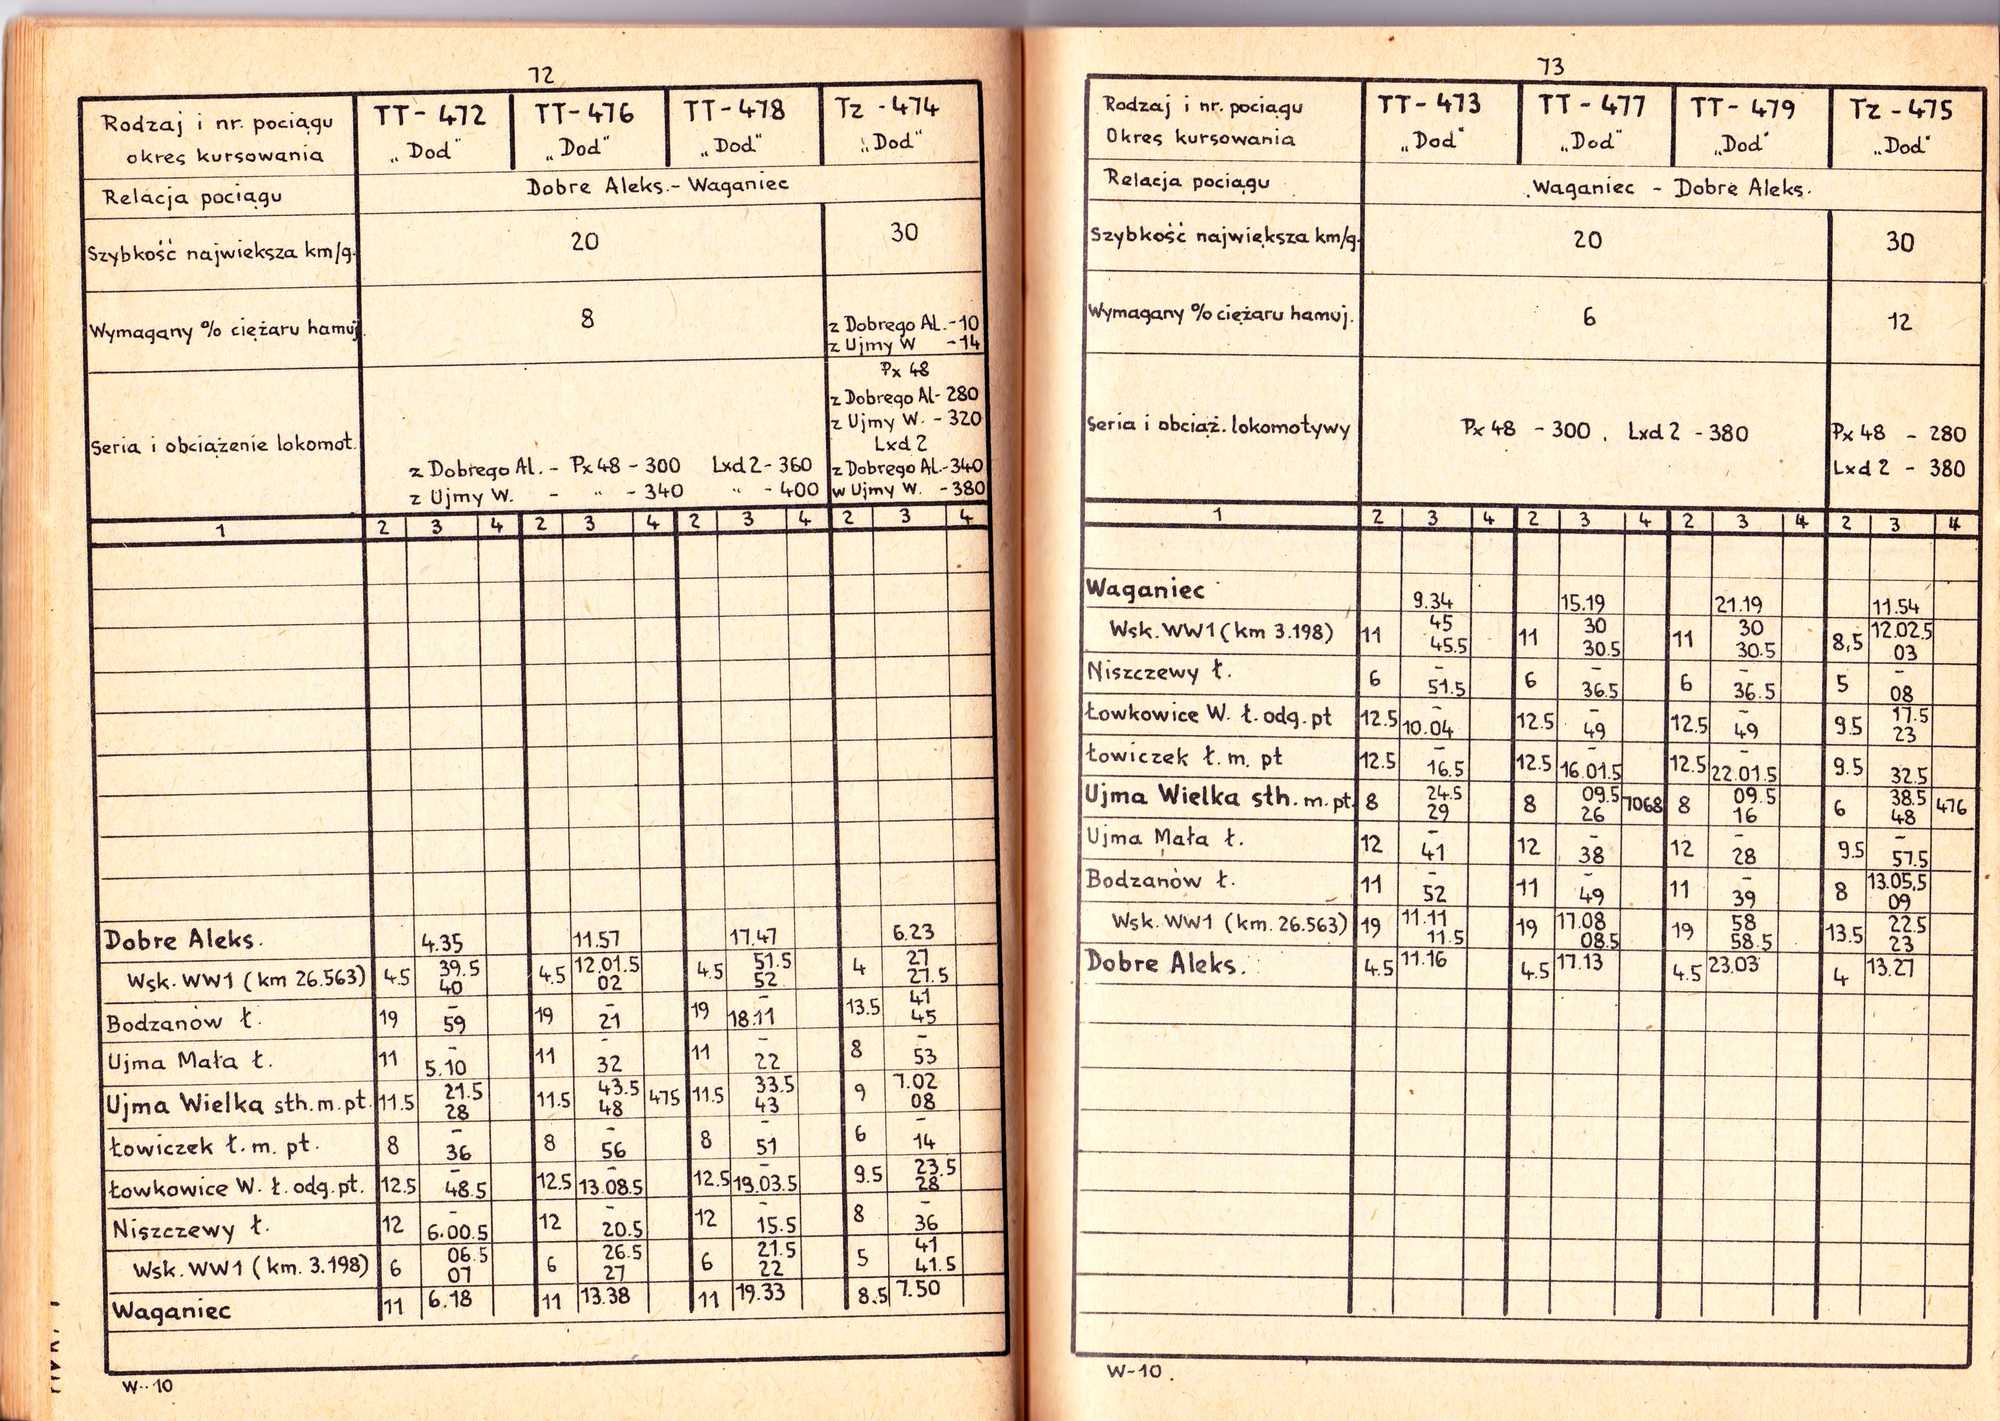 72
Rodzaj i nr. pociągu TT - 472 TT - 476 TT - 478 Tz - 474
okres kursowania „Dod" „Dod" „Dod" „Dod"
Relacja pociągu Dobre Aleks. - Waganiec
Szybkość największa km/g. 20 30
Wymagany % ciężaru hamuj. 8 z Dobrego Al. - 10
z Ujmy W - 14
Px 48
z Dobrego Al - 280
z Ujmy W. - 320
Lxd 2
Seria i obciążenie lokomot. z Dobrego Al. - Px 48 - 300 Lxd 2 - 360 z Dobrego Al. - 340
z Ujmy W. - „ - 340 „ - 400 w Ujmy W. - 380
1 2 3 4 2 3 4 2 3 4 2 3 4
Dobre Aleks. 4.35 11.57 17.47 6.23
Wsk. WW1 (km 26.563) 4.5 39.5 4.5 12.01.5 4.5 51.5 4 27
40 02 52 27.5
Bodzanów ł. 19 – 19 – 19 – 13.5 41
59 21 18.11 45
Ujma Mała ł. 11 – 11 – 11 – 8 –
5.10 32 22 53
Ujma Wielka sth. m. pt. 11.5 21.5 11.5 43.5 475 11.5 33.5 9 7.02
28 48 43 08
Łowiczek ł. m. pt. 8 – 8 – 8 – 6 –
36 56 51 14
Łowkowice W. ł. odg. pt. 12.5 – 12.5 – 12.5 – 9.5 23.5
48.5 13.08.5 19.03.5 28
Niszczewy ł. 12 – 12 – 12 – 8 –
6.00.5 20.5 15.5 36
Wsk. WW1 (km. 3.198) 6 06.5 6 26.5 6 21.5 5 41
07 27 22 41.5
Waganiec 11 6.18 11 13.38 11 19.33 8.5 7.50
W-10
73
Rodzaj i nr. pociągu TT - 473 TT - 477 TT - 479 Tz - 475
Okres kursowania „Dod" „Dod" „Dod" „Dod"
Relacja pociągu Waganiec - Dobre Aleks.
Szybkość największa km/g. 20 30
Wymagany % ciężaru hamuj. 6 12
Seria i obciąż. lokomotywy Px 48 - 300, Lxd 2 - 380 Px 48 - 280
Lxd 2 - 380
1 2 3 4 2 3 4 2 3 4 2 3 4
Waganiec 9.34 15.19 21.19 11.54
Wsk. WW1 (km 3.198) 11 45 11 30 11 30 8,5 12.02.5
45.5 30.5 30.5 03
Niszczewy ł. 6 – 6 – 6 – 5 –
51.5 36.5 36.5 08
Łowkowice W. ł. odg. pt 12.5 – 12.5 – 12.5 – 9.5 17.5
10.04 49 49 23
Łowiczek ł. m. pt 12.5 – 12.5 – 12.5 – 9.5
16.5 16.01.5 22.01.5 32.5
Ujma Wielka sth. m. pt. 8 24.5 8 09.5 7068 8 09.5 6 38.5 476
29 26 16 48
Ujma Mała ł. 12 – 12 – 12 – 9.5 –
41 38 28 57.5
Bodzanów ł. 11 – 11 – 11 – 8 13.05,5
52 49 39 09
Wsk. WW1 (km. 26.563) 19 11.11 19 17.08 19 58 13.5 22.5
11.5 08.5 58.5 23
Dobre Aleks. 4.5 11.16 4.5 17.13 4.5 23.03 4 13.27
W-10.